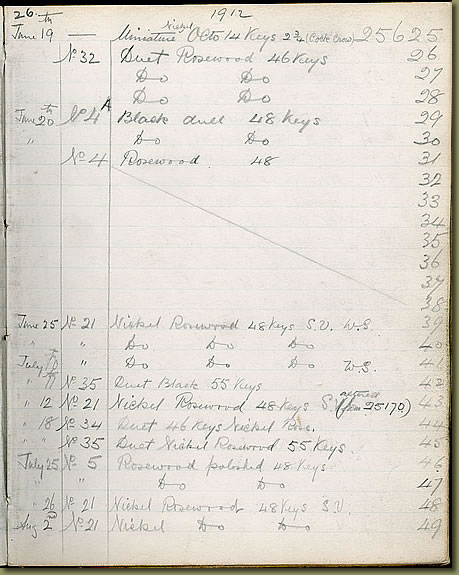 26. 1912
June 19th — Miniature Nickel Octo 14 Keys 2 3/4 25625
No 32 Duet Rosewood 46 Keys 26
Do Do 27
Do Do 28
June 20th No 4A Black dull 48 Keys 29
" Do Do 30
No 4 Rosewood 48 31
32
33
34
35
36
37
38
June 25 No 21 Nickel Rosewood 48 Keys S.V. W.S. 39
" " Do Do Do 40
July 10 " Do Do Do W.S. 41
" 11 No 35 Duet Black 55 Keys 42
" 12 No 21 Nickel Rosewood 48 Keys S.V. (altered from 25170) 43
" 18 No 34 Duet 46 Keys Nickel Rose. 44
No 35 Duet Nickel Rosewood 55 Keys. 45
July 25 No 5 Rosewood polished 48 Keys 46
" " Do Do 47
" 26 No 21 Nickel Rosewood 48 Keys S.V. 48
Aug 2nd No 21 Nickel Do Do 49